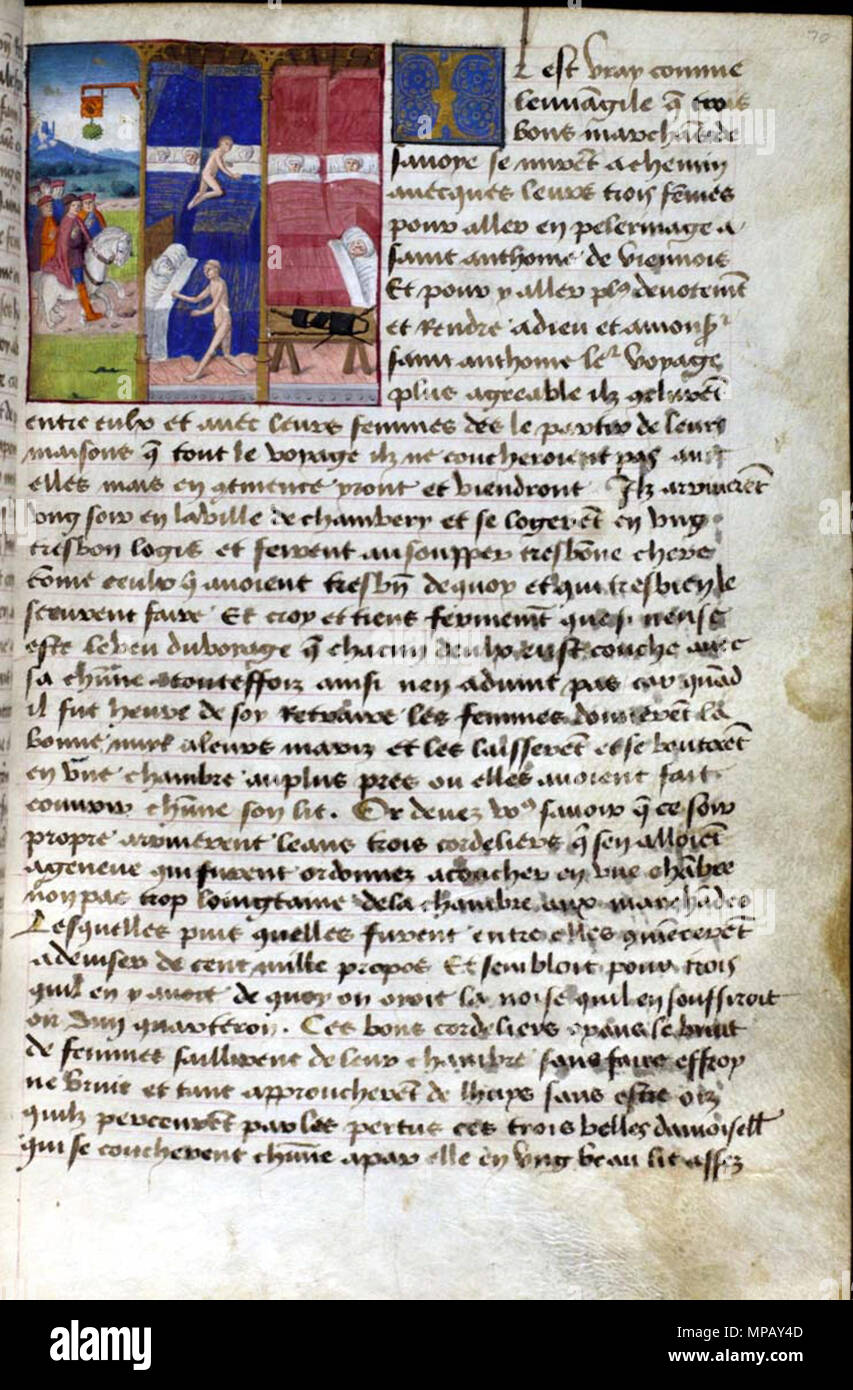 70
Il est vray comme
leuua͞gile q̄ trois
bons marcha͞s de
sauoye se mire͞t a chemin
auecques leurs trois fe͞mes
pour aller en pelerinage a
saint anthoine de viennois
Et pour y aller pl⁹ deuotem͞t
et Rendre a dieu et a monsr
saint anthoine ler voyage
plus agreable ilz
entre eulx et auec leurs femmes des le partir de leurs
maisons q̄ tout le voyage ilz ne coucheroient pas auec
elles mais en yront et viendront Ilz arriuere͞t
vng soir en la ville de chambery et se logere͞t en vng
tresbon logis et firent au soupper tresbo͞ne chere
co͞me ceulx q̄ auoient tresbn̄ dequoy et qui tresbien le
sceurent faire Et croy et tiens fermem͞t que si neust
este le veu du voyage q̄ chacun deulx eust couche auec
sa chūne toutteffoiz ainsi nen aduint pas car qua͞d
il fut heure de soy Retraire les femmes donnere͞t la
bonne nuyt a leurs mariz et les laisserent et se boutere͞t
en vne chambre au plus pres ou elles auoient fait
couurir chūne son lit. Or deuez v⁹ sauoir q̄ ce soir
propre arriuerent leans trois cordeliers q̄ sen alloie͞t
a geneue qui furent ordonnez a coucher en vne cha͞bre
non pas trop loingtaine de la chambre aux marcha͞des
Lesquelles puis quelles furent entre elles
a deuiser de cent mille propos Et sembloit pour trois
quil en y auoit de quoy on oioit la noise quil en souffiroit
on dun quarteron. Ces bons cordeliers oyans le bruit
de femmes saillirent de leur chambre sans faire effroy
ne bruit et tant approucherent de lhuys sans estre oiz
quilz perceurent par les pertus ces trois belles damoisell
qui se coucherent chūne a par elle en vng beau lit assez
alamy
Image ID: MPAY4D
www.alamy.com